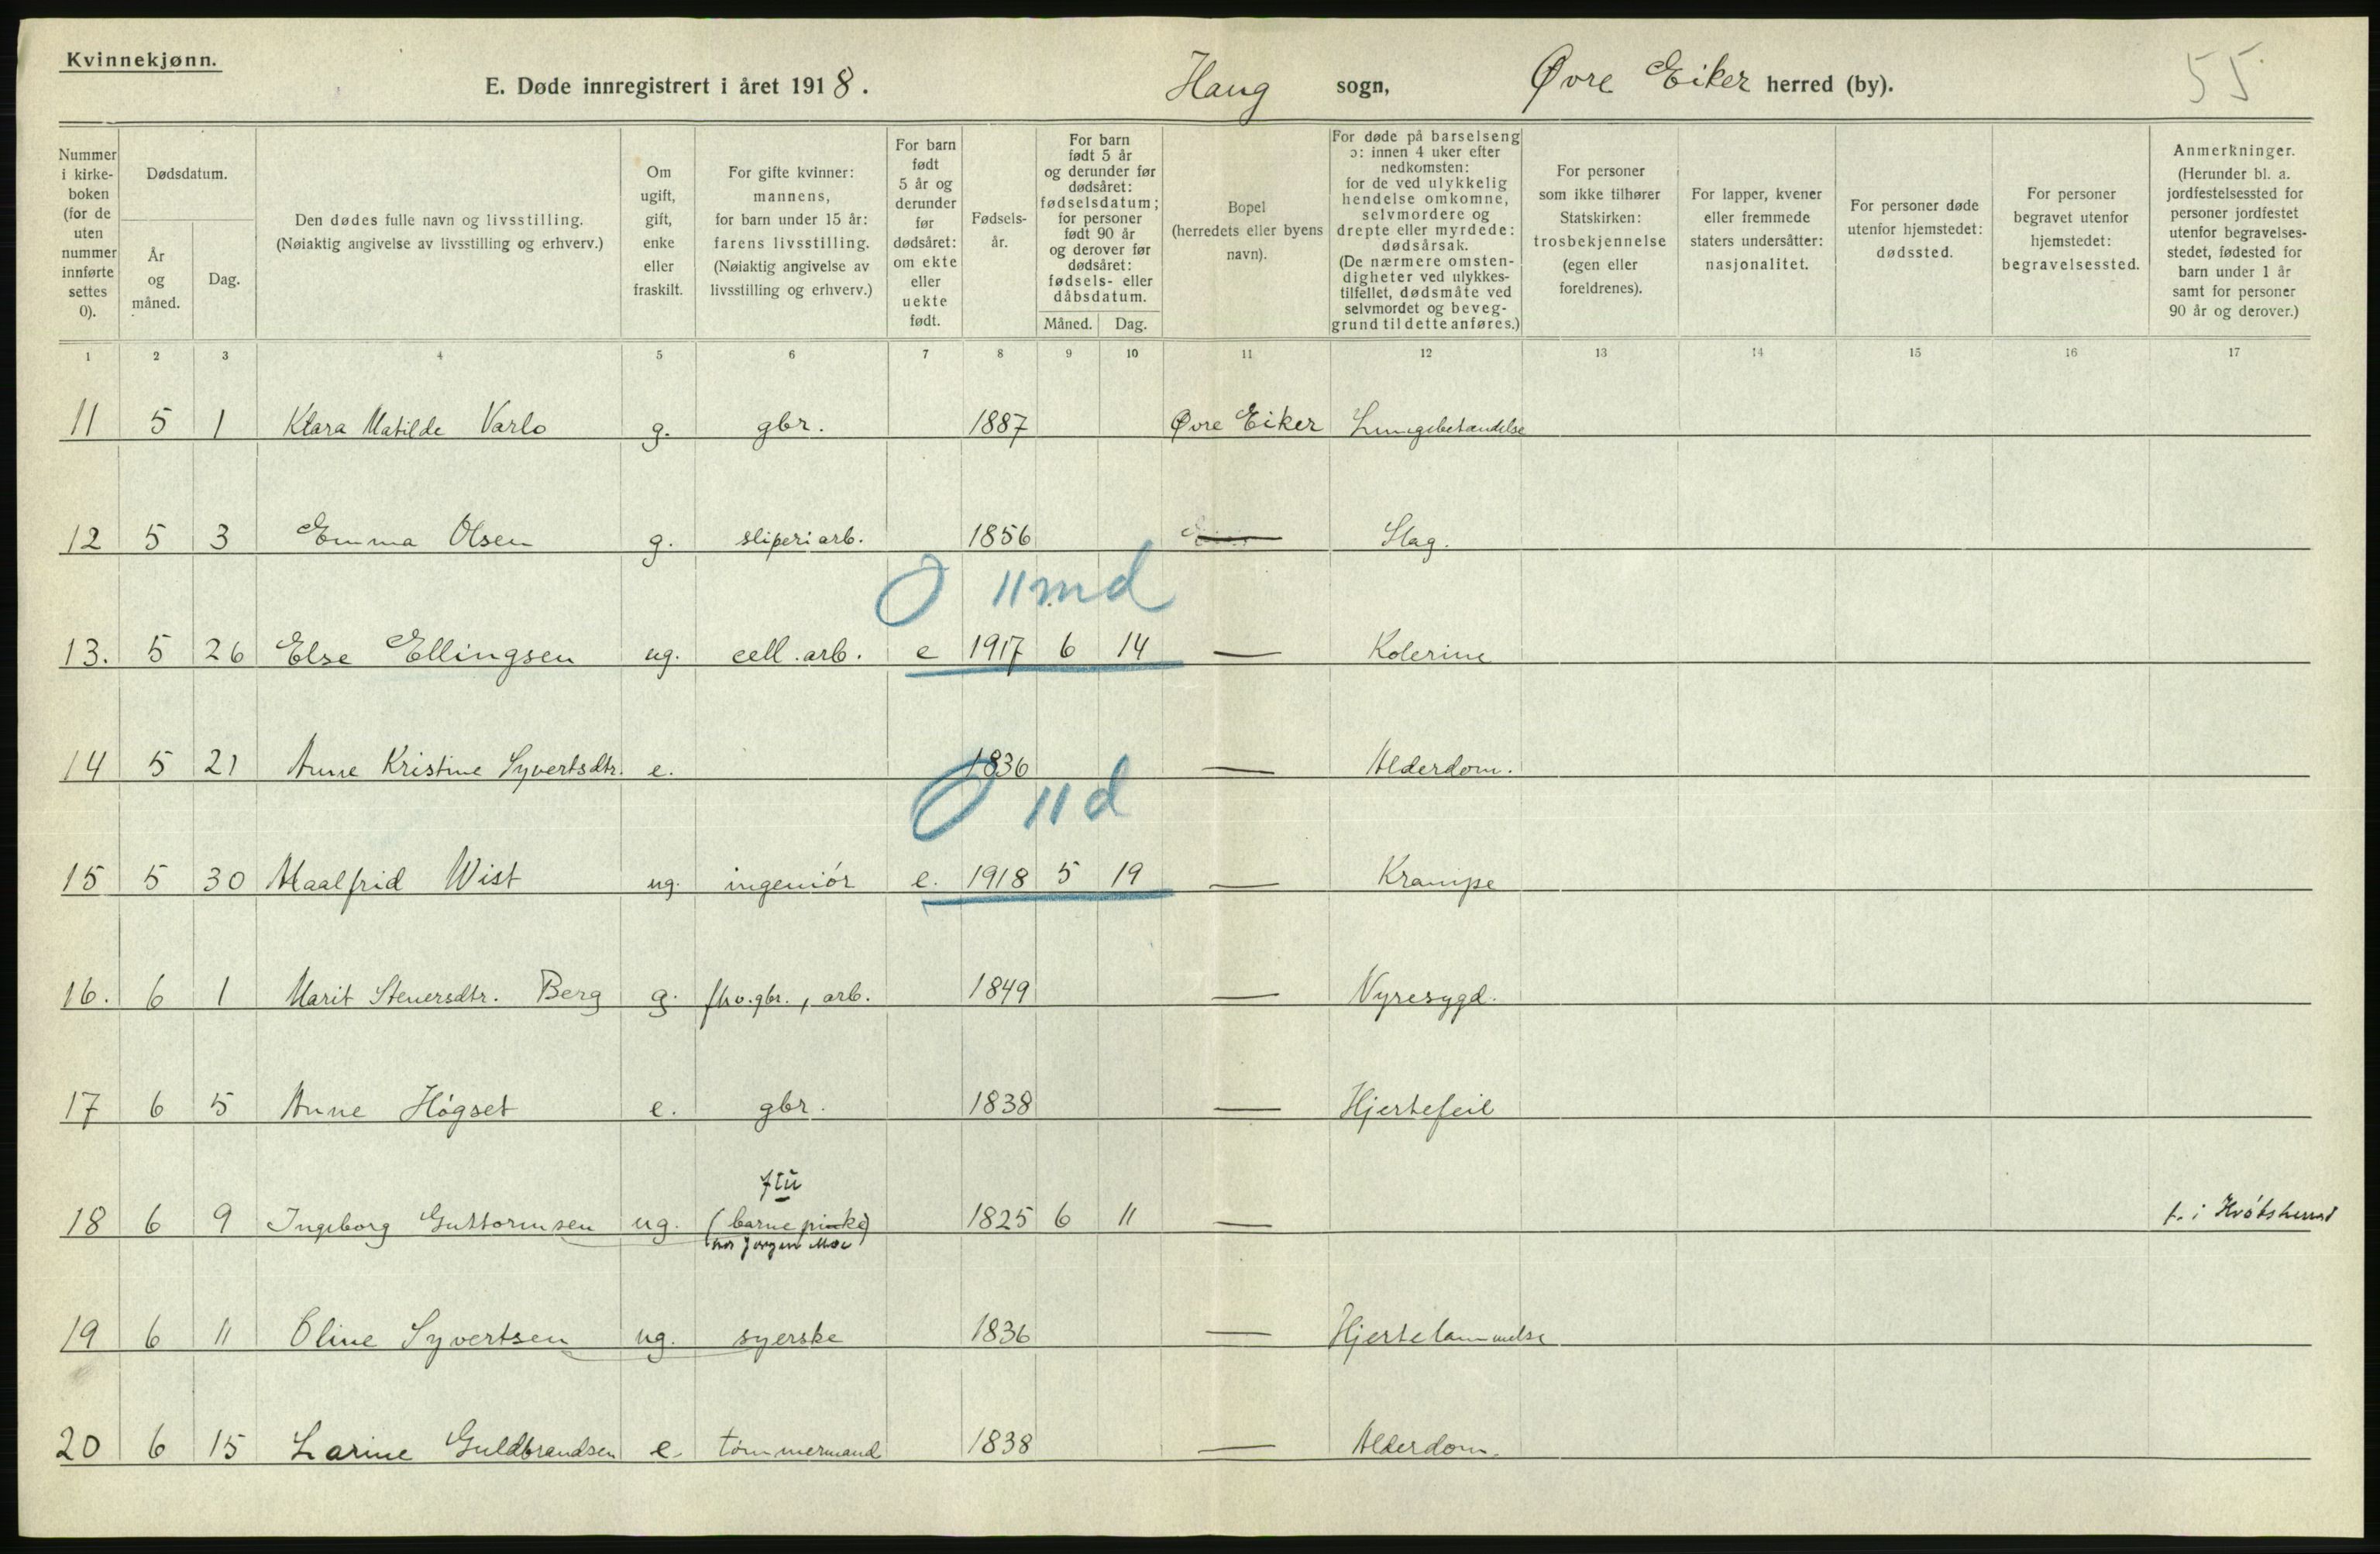 Kvinnekjønn.
E. Døde innregistrert i året 1918. Haug sogn, Øvre Eiker herred (by). 55
Nummer i kirkeboken (for de uten nummer innførte settes 0).
Dødsdatum.
År og måned.
Dag.
Den dødes fulle navn og livsstilling.
(Nøiaktig angivelse av livsstilling og erhverv.)
Om ugift, gift, enke eller fraskilt.
For gifte kvinner: mannens, for barn under 15 år: farens livsstilling. (Nøiaktig angivelse av livsstilling og erhverv.)
For barn født 5 år og derunder før dødsåret: om ekte eller uekte født.
Fødsels-år.
For barn født 5 år og derunder før dødsåret: fødselsdatum; for personer født 90 år og derover før dødsåret: fødsels- eller dåbsdatum.
Måned. Dag.
Bopel (herredets eller byens navn).
For døde på barselseng ɔ: innen 4 uker efter nedkomsten: for de ved ulykkelig hendelse omkomne, selvmordere og drepte eller myrdede: dødsårsak. (De nærmere omstendigheter ved ulykkestilfellet, dødsmåte ved selvmordet og beveggrund til dette anføres.)
For personer som ikke tilhører Statskirken: trosbekjennelse (egen eller foreldrenes).
For lapper, kvener eller fremmede staters undersåtter: nasjonalitet.
For personer døde utenfor hjemstedet: dødssted.
For personer begravet utenfor hjemstedet: begravelsessted.
Anmerkninger. (Herunder bl. a. jordfestelsessted for personer jordfestet utenfor begravelsesstedet, fødested for barn under 1 år samt for personer 90 år og derover.)
1 2 3 4 5 6 7 8 9 10 11 12 13 14 15 16 17
11 5 1 Klara Matilde Varlo g. gbr. 1887 Øvre Eiker Lungebetændelse
12 5 3 Emma Olsen g. sliperiarb. 1856 — Slag.
0 11 md
13. 5 26 Else Ellingsen ug. cell. arb. e 1917 6 14 — Kolerine
14 5 21 Anne Kristine Syvertsdtr. e. 1836 — Alderdom.
0 11 d
15 5 30 Maalfrid Wist ug. ingeniór e. 1918 5 19 — Krampe
16. 6 1 Marit Steversdtr. Berg g. fhv. gbr., arb. 1849 — Nyresygd.
17 6 5 Anne Högset e. gbr. 1838 — Hjertefeil
18 6 9 Ingeborg Guttormsen ug. (barnepike) 1825 6 11 — f. i
hos Jørgen Moe
19 6 11 Oline Syvertsen ug. syerske 1836 — Hjertelammelse
20 6 15 Larine Guldbrandsen e. tømmermand 1838 — Alderdom.